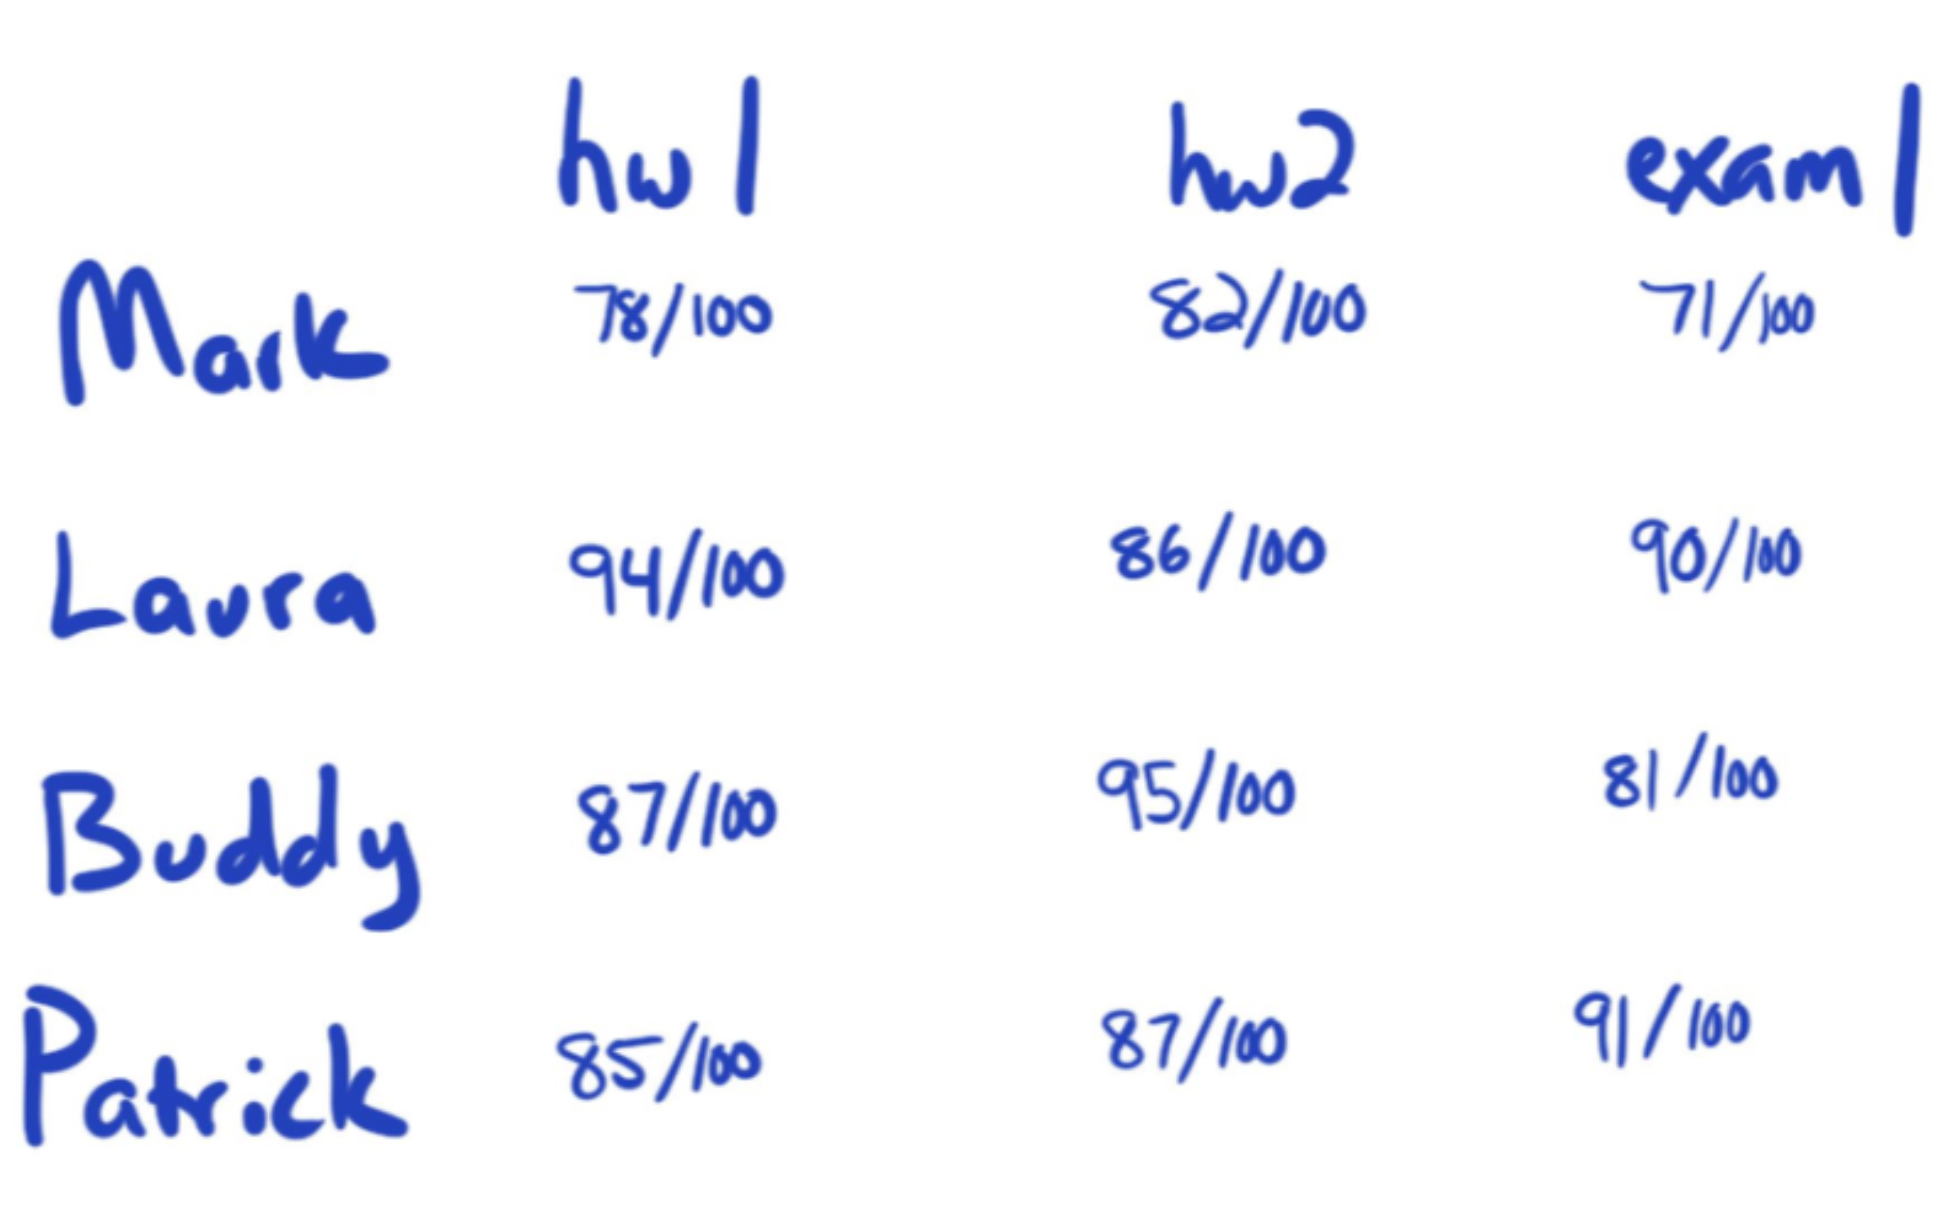 hw 1 hw2 exam 1
Mark 78/100 82/100 71/100
Laura 94/100 86/100 90/100
Buddy 87/100 95/100 81/100
Patrick 85/100 87/100 91/100